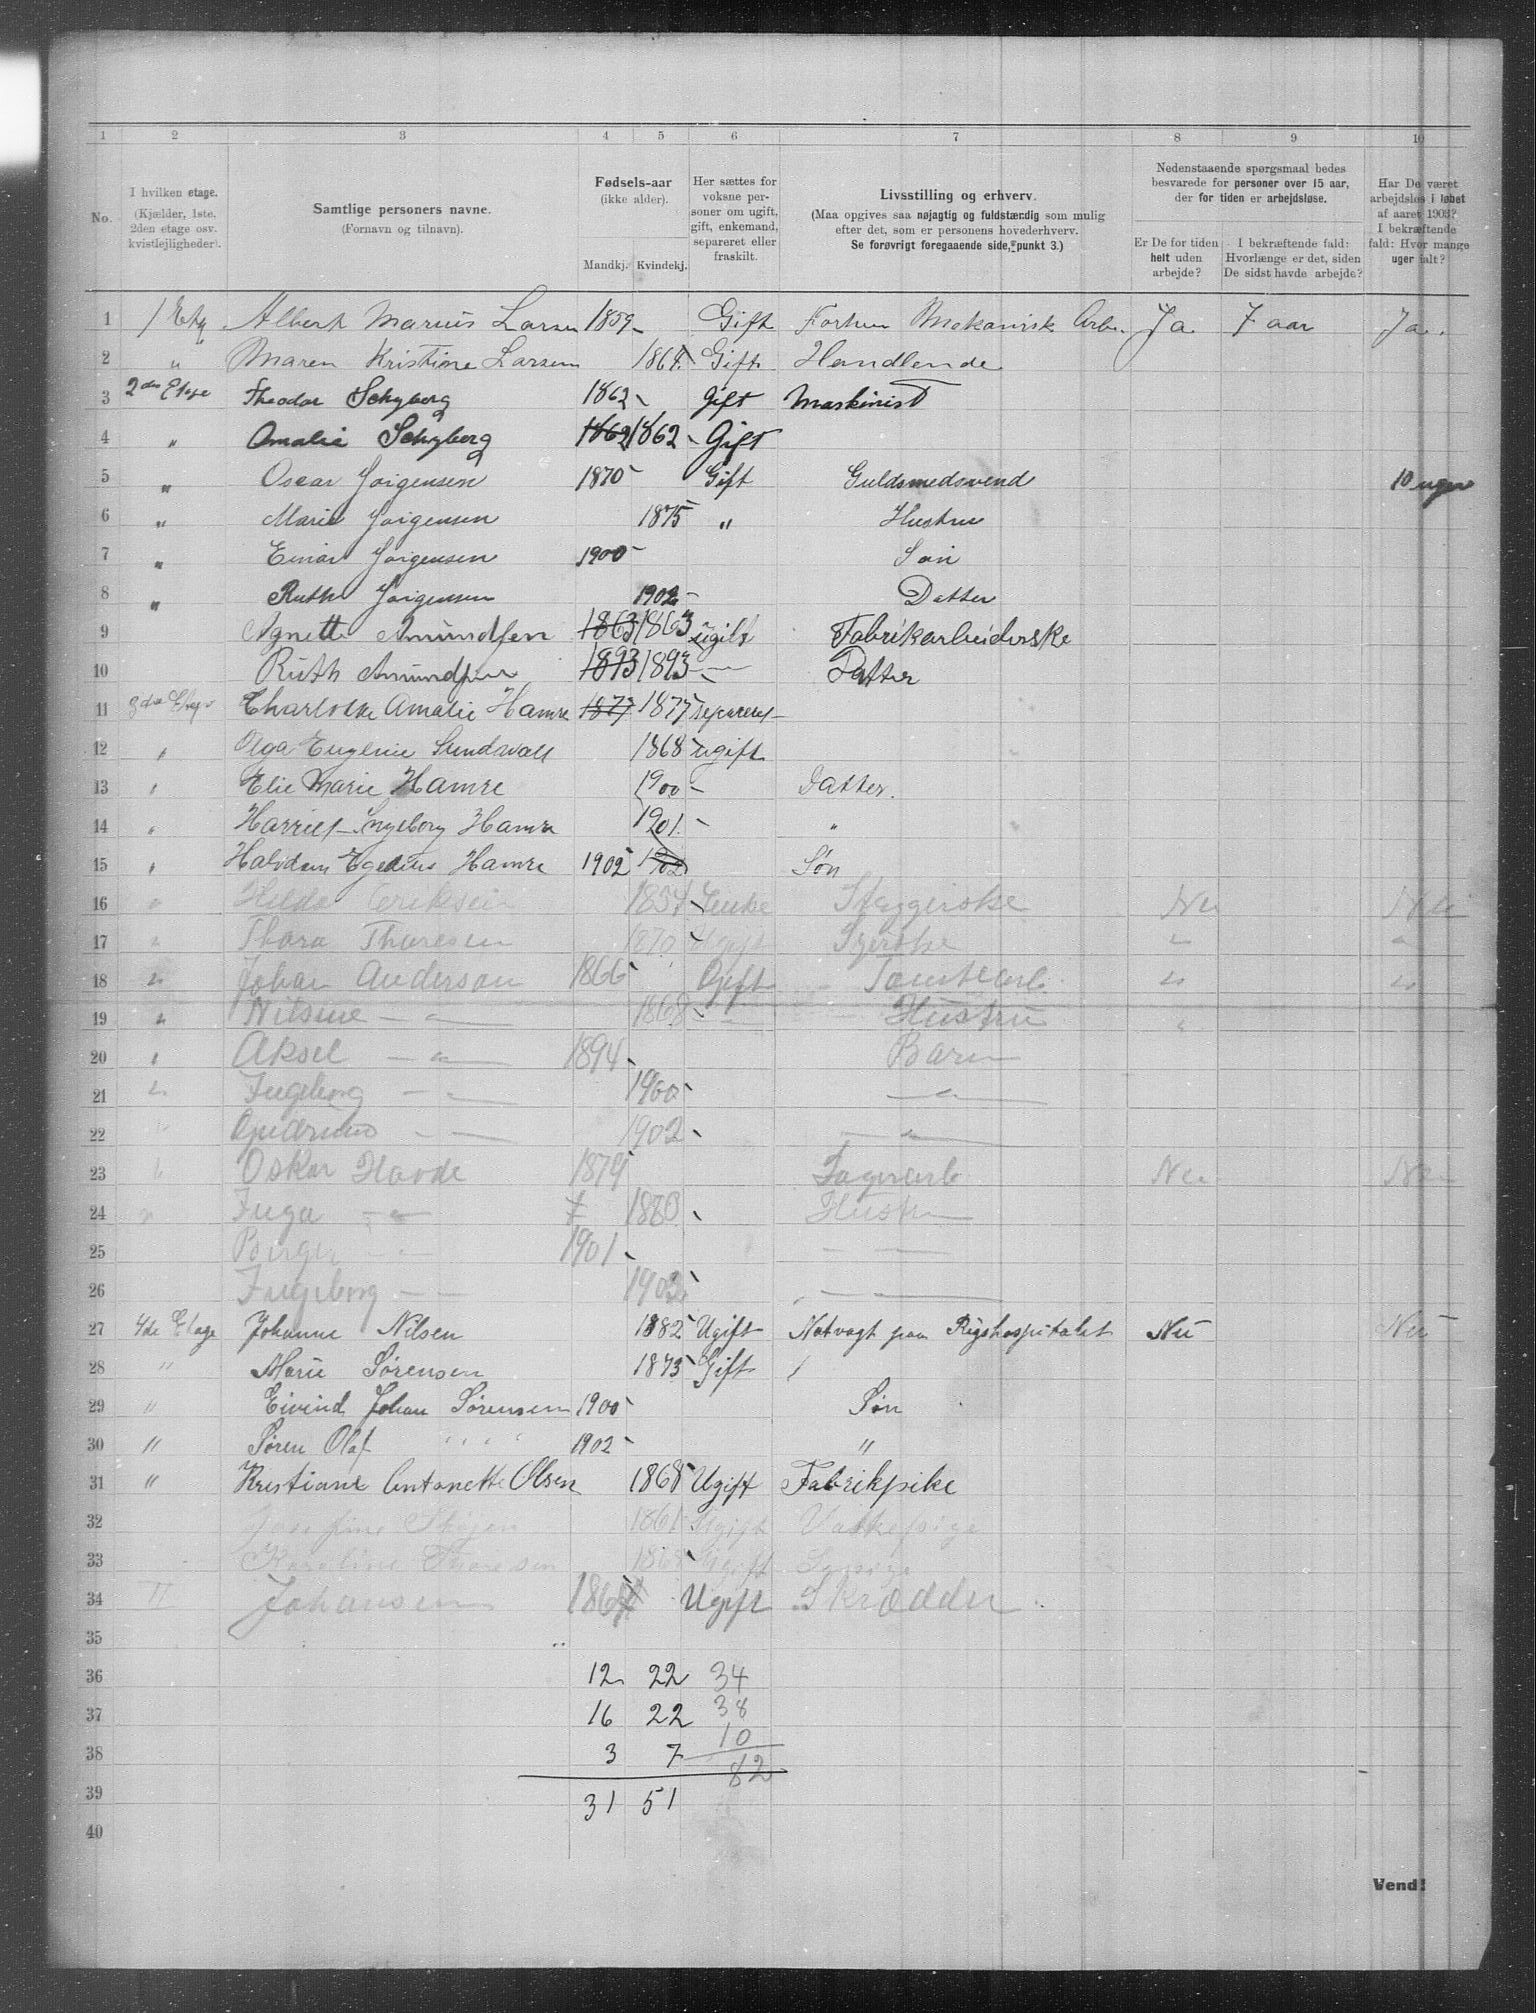 1 2 3 4 5 6 7 8 9 10
No.
I hvilken etage.
(Kjælder, 1ste, 2den etage osv. kvistlejligheder).
Samtlige personers navne.
(Fornavn og tilnavn).
Fødsels-aar
(ikke alder).
Mandkj. Kvindekj.
Her sættes for voksne personer om ugift, gift, enkemand, separeret eller fraskilt.
Livsstilling og erhverv.
(Maa opgives saa nøjagtig og fuldstændig som mulig efter det, som er personens hovederhverv.
Se forøvrigt foregaaende side, punkt 3.)
Nedenstaaende spørgsmaal bedes besvarede for personer over 15 aar, der for tiden er arbejdsløse.
Er De for tiden helt uden arbejde?
I bekræftende fald: Hvorlænge er det, siden De sidst havde arbejde?
Har De været arbejdsløs i løbet af aaret 1903? I bekræftende fald: Hvor mange uger ialt?
1 1 Etg Albert Marius Larsen 1859 Gift Forhen Mekanisk Arb. Ja 7 aar Ja.
2 " Maren Kristine Larsen 1864 Gift Handlende
3 2den Etage Theodor Schyberg 1862 Gift Maskinist
4 " Amalie Schyberg 1862 1862 Gift
5 " Oscar Jørgensen 1870 Gift Guldsmedsvend 10 uger
6 " Marie Jørgensen 1875 " Hustru
7 " Einar Jørgensen 1900 Søn
8 " Ruth Jørgensen 1902 Datter
9 Agnette Amundsen 1863 1863 ugift Fabrikarbeiderske
10 Ruth Amundsen 1893 1893 — Datter
11 3die Etage Charlotte Amalie Hamre 1877 1877 separeret
12 " Olga Eugenie Sundwall 1868 ugift
13 " Elie Marie Hamre 1900 Datter.
14 " Harriet Ingeborg Hamre 1901 "
15 " Halvdan Egedius Hamre 1902 1902 Søn
16 " Hilda Eriksen 1854 Enke Strygerske Nei Nei
17 " Thora Thoresen 1870 Ugift Syerske " "
18 " Johan Anderson 1866 Gift Tomtearb. " "
19 " Nilsine — " — 1868 — Hustru "
20 " Aksel — " — 1894 Barn
21 " Ingeborg — " — 1900 — " —
22 " Gudrund — " — 1902 — " —
23 " Oskar Hovde 1879 Lagerarb Nei Nei
24 " Inga — " — 1880 Hustru
25 Birger — " — 1901 — —
26 Ingeborg — — 1903 —
27 4de Etage Johanne Nilsen 1882 Ugift Natvagt paa Rigshospitalet Nei Nei
28 " Marie Sørensen 1873 Gift "
29 " Eivind Johan Sørensen 1900 Søn
30 " Søren Olaf " " " " 1902 "
31 " Kristiane Antonette Olsen 1868 Ugift Fabrikpike
32 Josefine 1861 Ugift Vaskepige
33 Karoline Thoresen 1868 Ugift
34 " Johansen 1864 Ugift Skrædder
35
36 12 22 34
37 16 22 38
38 3 7 10
82
39 31 51
40
Vend!